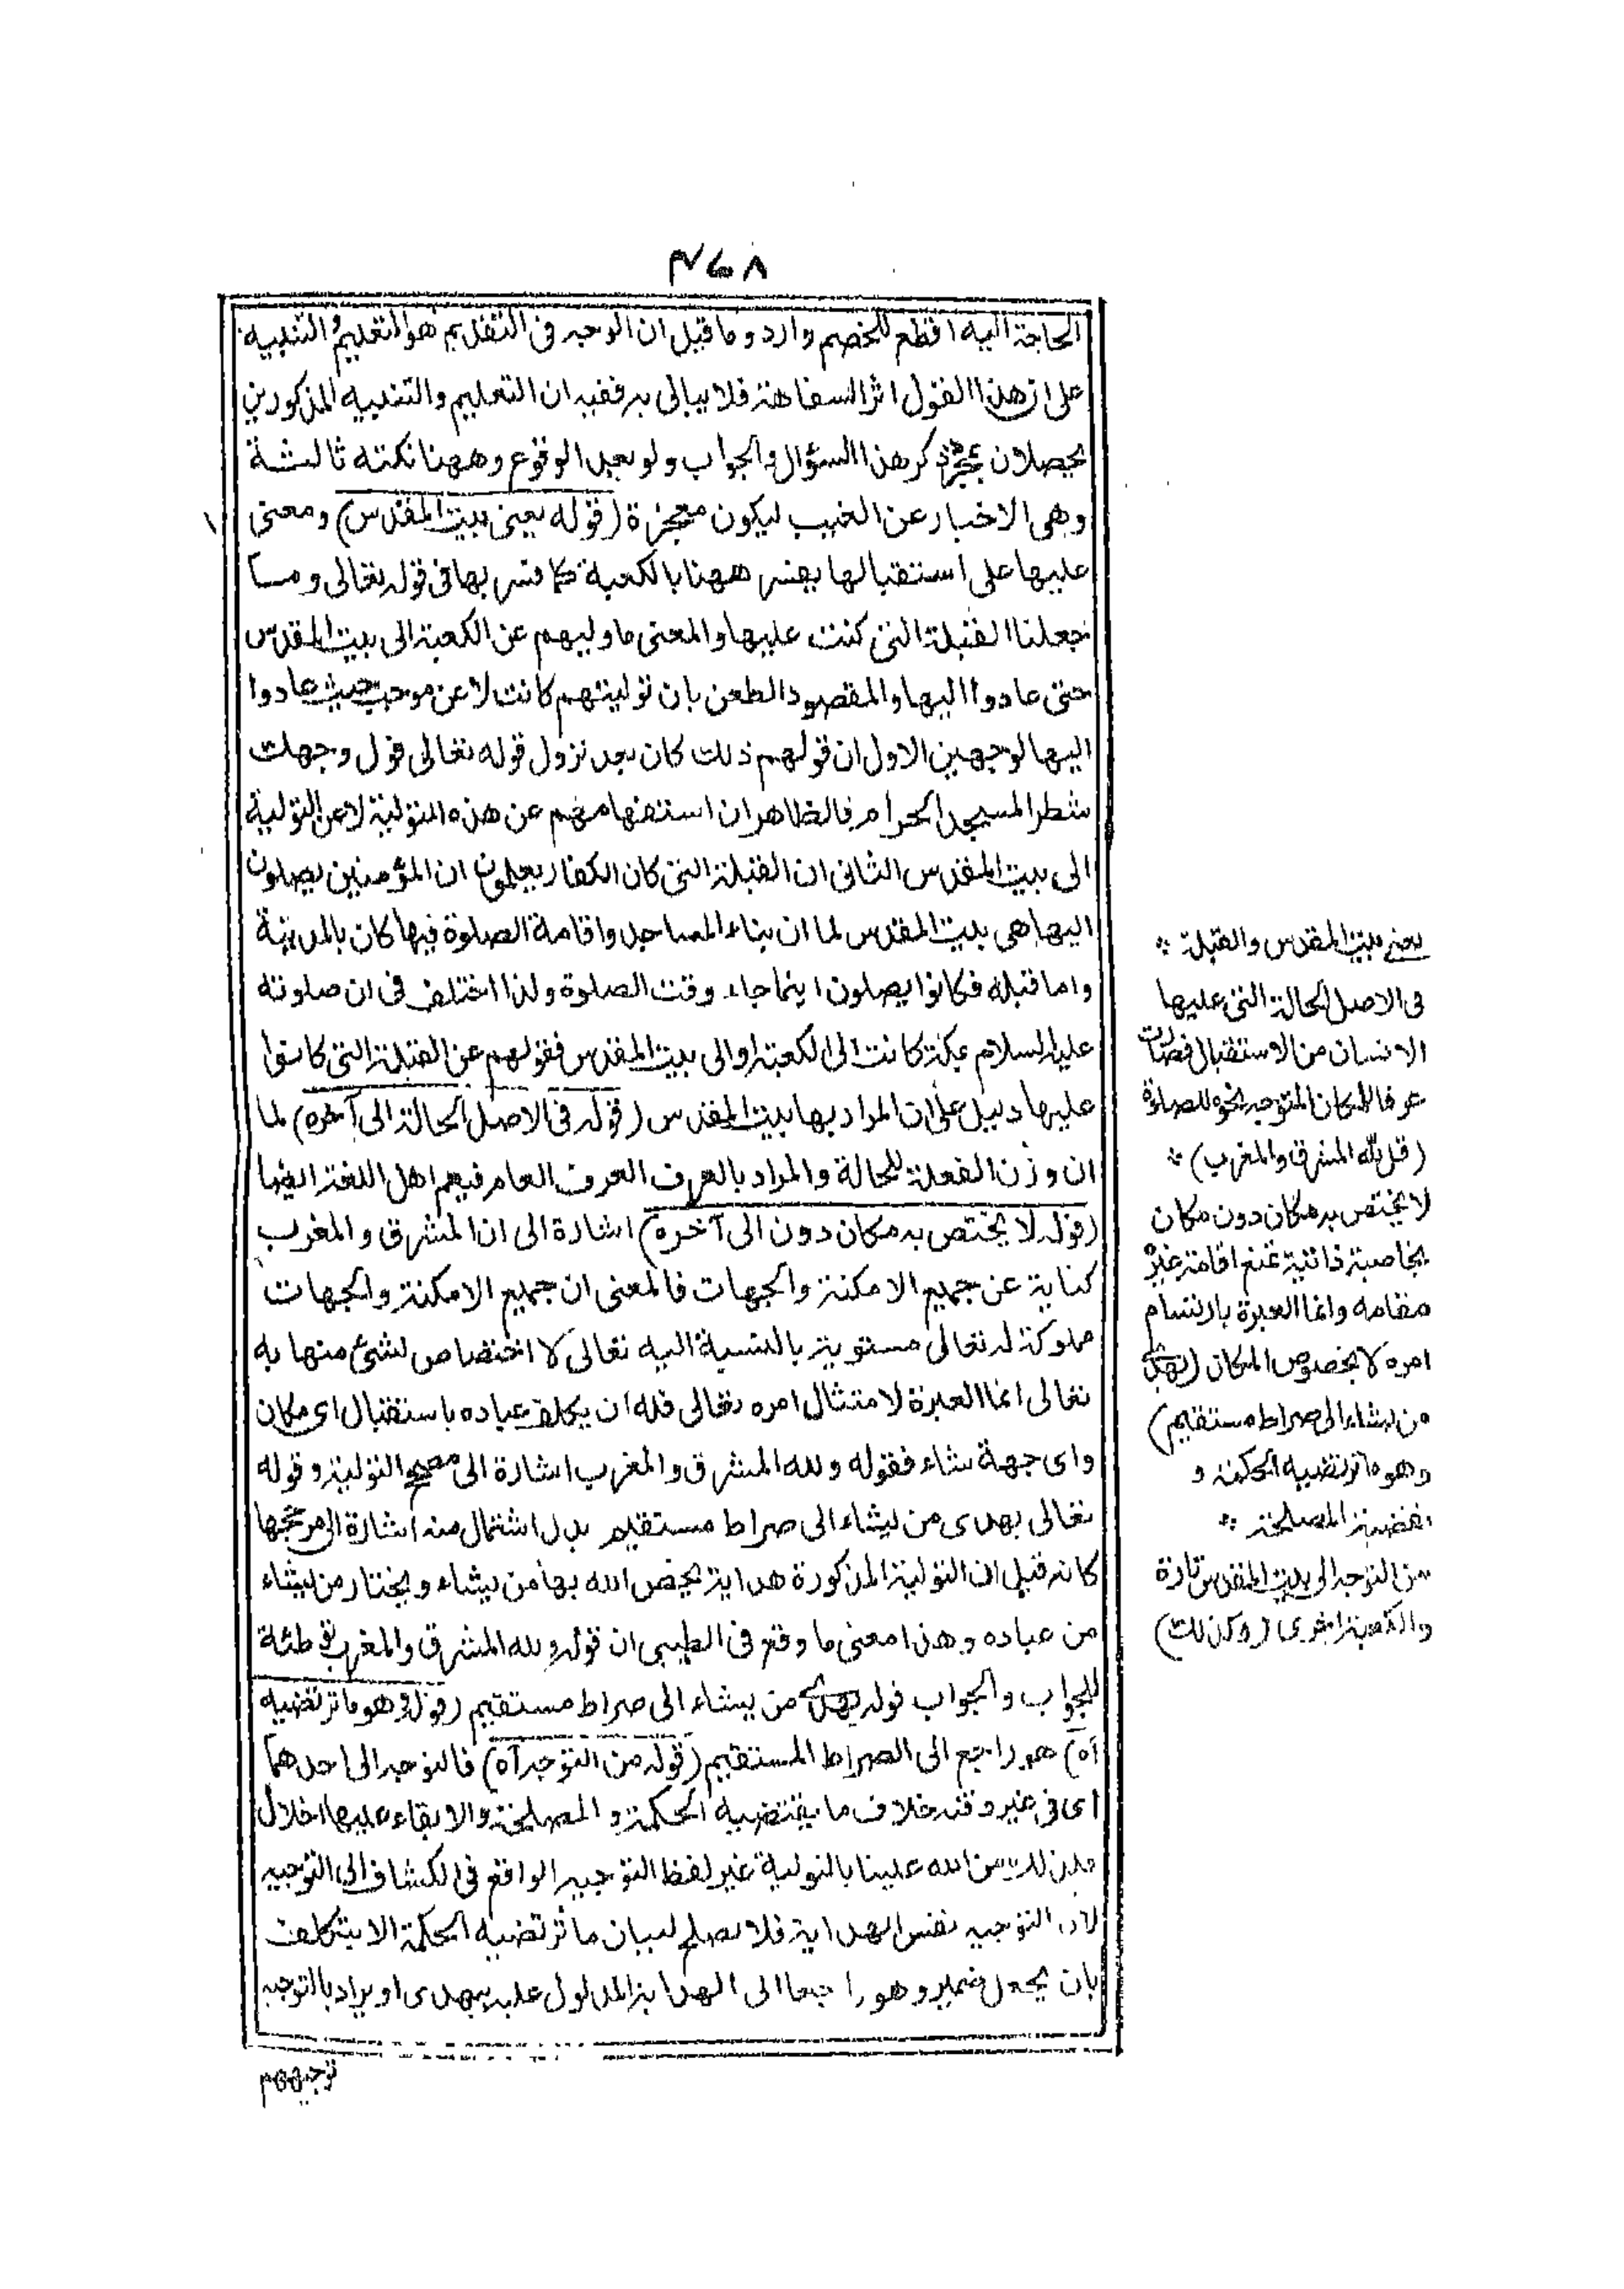 ٤٦٨
الحاجة اليه اقطع للخصم وارد وما قيل ان الوجه فى التقديم هو التعليم والتنبيه
على ان هذا القول اثر السفاهة فلا يبالى به ففيه ان التعليم والتنبيه المذكورين
يحصلان بمجرد ذكر هذا السؤال والجواب ولو بعد الوقوع وههنا نكتة ثالثة
وهى الاخبار عن الغيب ليكون معجزة (قوله يعنى بيت المقدس) ومعنى
عليها على استقبالها يفسر ههنا بالكعبة كما فسر بها فى قوله تعالى وما
جعلنا القبلة التى كنت عليها والمعنى ما وليهم عن الكعبة الى بيت المقدس
حتى عادوا اليها والمقصود الطعن بان توليتهم كانت لا عن موجب حيث عادوا
اليها لوجهين الاول ان قولهم ذلك كان بعد نزول قوله تعالى فول وجهك
شطر المسجد الحرام فالظاهر ان استفهامهم عن هذه التولية لا عن التولية
الى بيت المقدس الثانى ان القبلة التى كان الكفار يعلمون ان المؤمنين يصلون
اليها هى بيت المقدس لما ان بناء المساجد واقامة الصلوة فيها كان بالمدينة
واما قبله فكانوا يصلون اينما جاء وقت الصلوة ولذا اختلف فى ان صلوته
عليه السلام بمكة كانت الى الكعبة او الى بيت المقدس فقولهم عن القبلة التى كانوا
عليها دليل على ان المراد بها بيت المقدس (قوله فى الاصل الحالة الى آخره) لما
ان وزن الفعلة للحالة والمراد بالعرف العرف العام فيعم اهل اللغة ايضا
(قوله لا يختص به مكان دون الى آخره) اشارة الى ان المشرق والمغرب
كناية عن جميع الامكنة والجهات فالمعنى ان جميع الامكنة والجهات
مملوكة له تعالى مستوية بالنسبة اليه تعالى لا اختصاص لشئ منها به
تعالى انما العبرة لامتثال امره تعالى فله ان يكلف عباده باستقبال اى مكان
واى جهة شاء فقوله ولله المشرق والمغرب اشارة الى مصحح التولية وقوله
تعالى يهدى من يشاء الى صراط مستقيم بدل اشتمال منه اشارة الى مرجحها
كانه قيل ان التولية المذكورة هداية يخص الله بها من يشاء ويختار من يشاء
من عباده وهذا معنى ما وقع فى الطيبى ان قوله ولله المشرق والمغرب توطئة
للجواب والجواب قوله يهدى من يشاء الى صراط مستقيم (قوله وهو ما ترتضيه
آه) هو راجع الى الصراط المستقيم (قوله من التوجه آه) فالتوجه الى احدهما
اى فى غير وقته خلاف ما يقتضيه الحكمة والمصلحة والابقاء عليها اخلال
من الله علينا بالتولية غير لفظ التوجيه الواقع فى الكشاف الى التوجه
لان التوجيه نفس الهداية فلا يصلح لبيان ما ترتضيه الحكمة الا بتكلف
بان يجعل ضمير وهو راجعا الى الهداية المدلول عليه بيهدى او يراد بالتوجيه
توجيههم
يعنى بيت المقدس والقبلة
فى الاصل الحالة التى عليها
الانسان من الاستقبال فصارت
عرفا للمكان المتوجه نحوه للصلوة
(قل لله المشرق والمغرب)
لا يختص به مكان دون مكان
بخاصية ذاتية تمنع اقامة غيره
مقامه وانما العبرة بارتسام
امره لا بخصوص المكان (يهدى
من يشاء الى صراط مستقيم)
وهو ما ترتضيه الحكمة و
تقتضيه المصلحة
من التوجه الى بيت المقدس تارة
والكعبة اخرى (وكذلك)